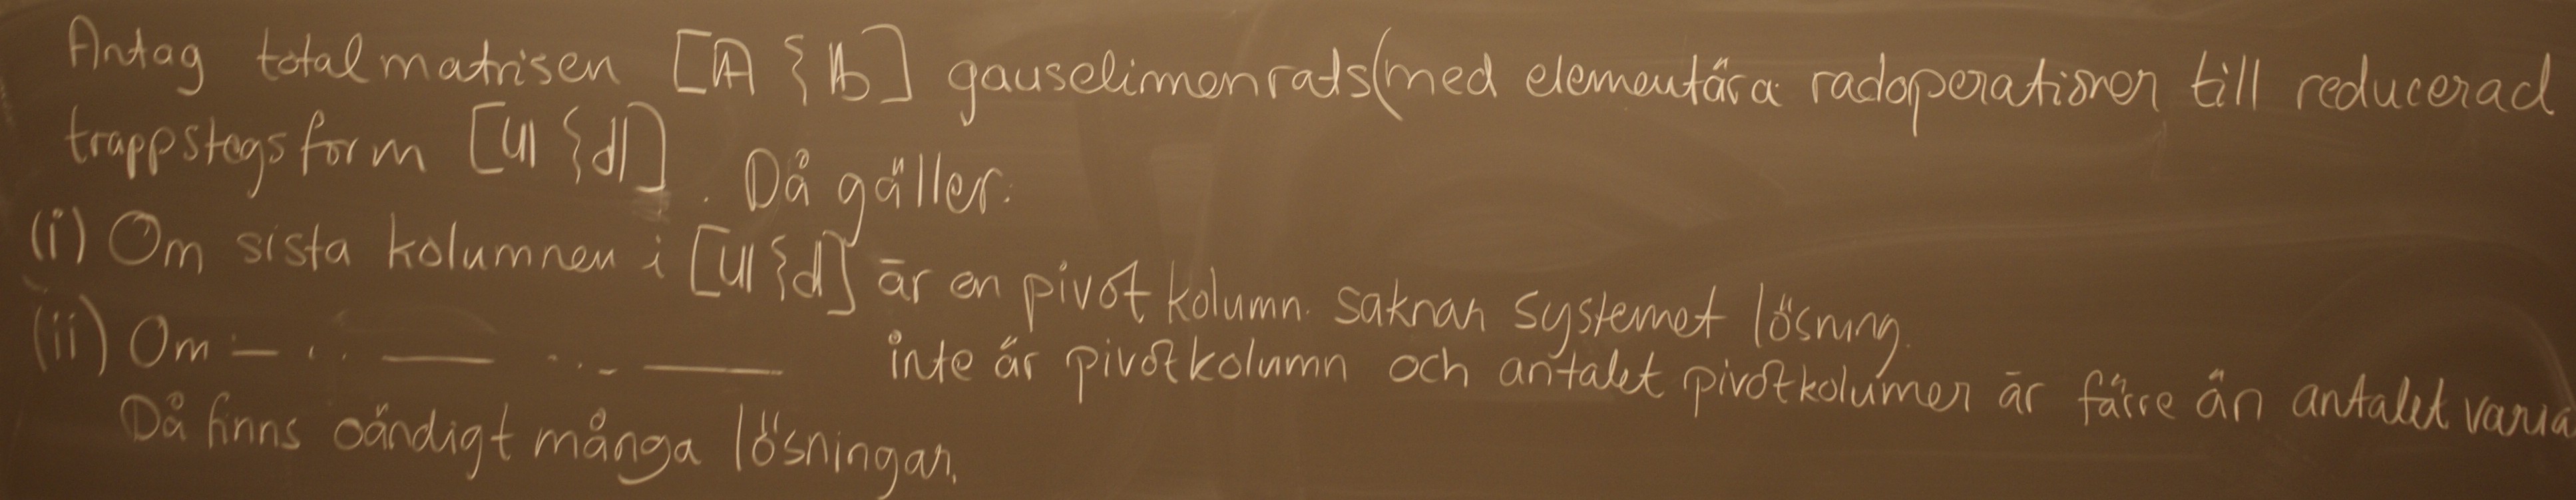 Antag totalmatrisen [A { b] gauselimenrats(med elementära radoperationer till reducerad
trappstegsform [U { d]. Då gäller:
(i) Om sista kolumnen i [U { d] är en pivotkolumn. saknar systemet lösning.
(ii) Om — ... — ... — inte är pivotkolumn och antalet pivotkolumner är färre än antalet varia
Då finns oändigt många lösningar.